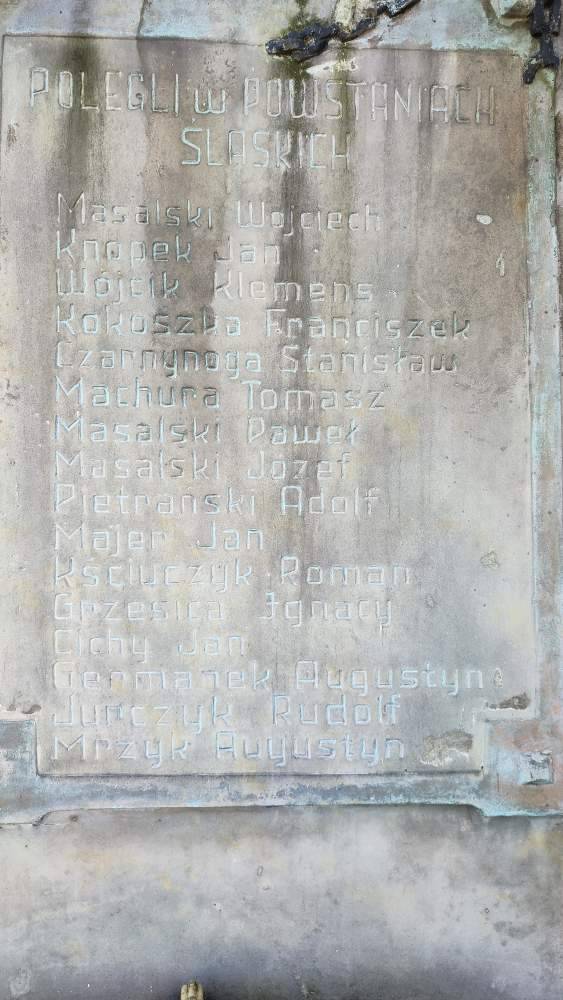 POLEGLI w POWSTANIACH
ŚLĄSKICH
Masalski Wojciech
Knopek Jan
Wójcik Klemens
Kokoszka Franciszek
Czarnynoga Stanisław
Machura Tomasz
Masalski Paweł
Masalski Józef
Pietrański Adolf
Majer Jan
Kściuczyk Roman
Grzesica Ignacy
Cichy Jan
Germanek Augustyn
Jurczyk Rudolf
Mrzyk Augustyn